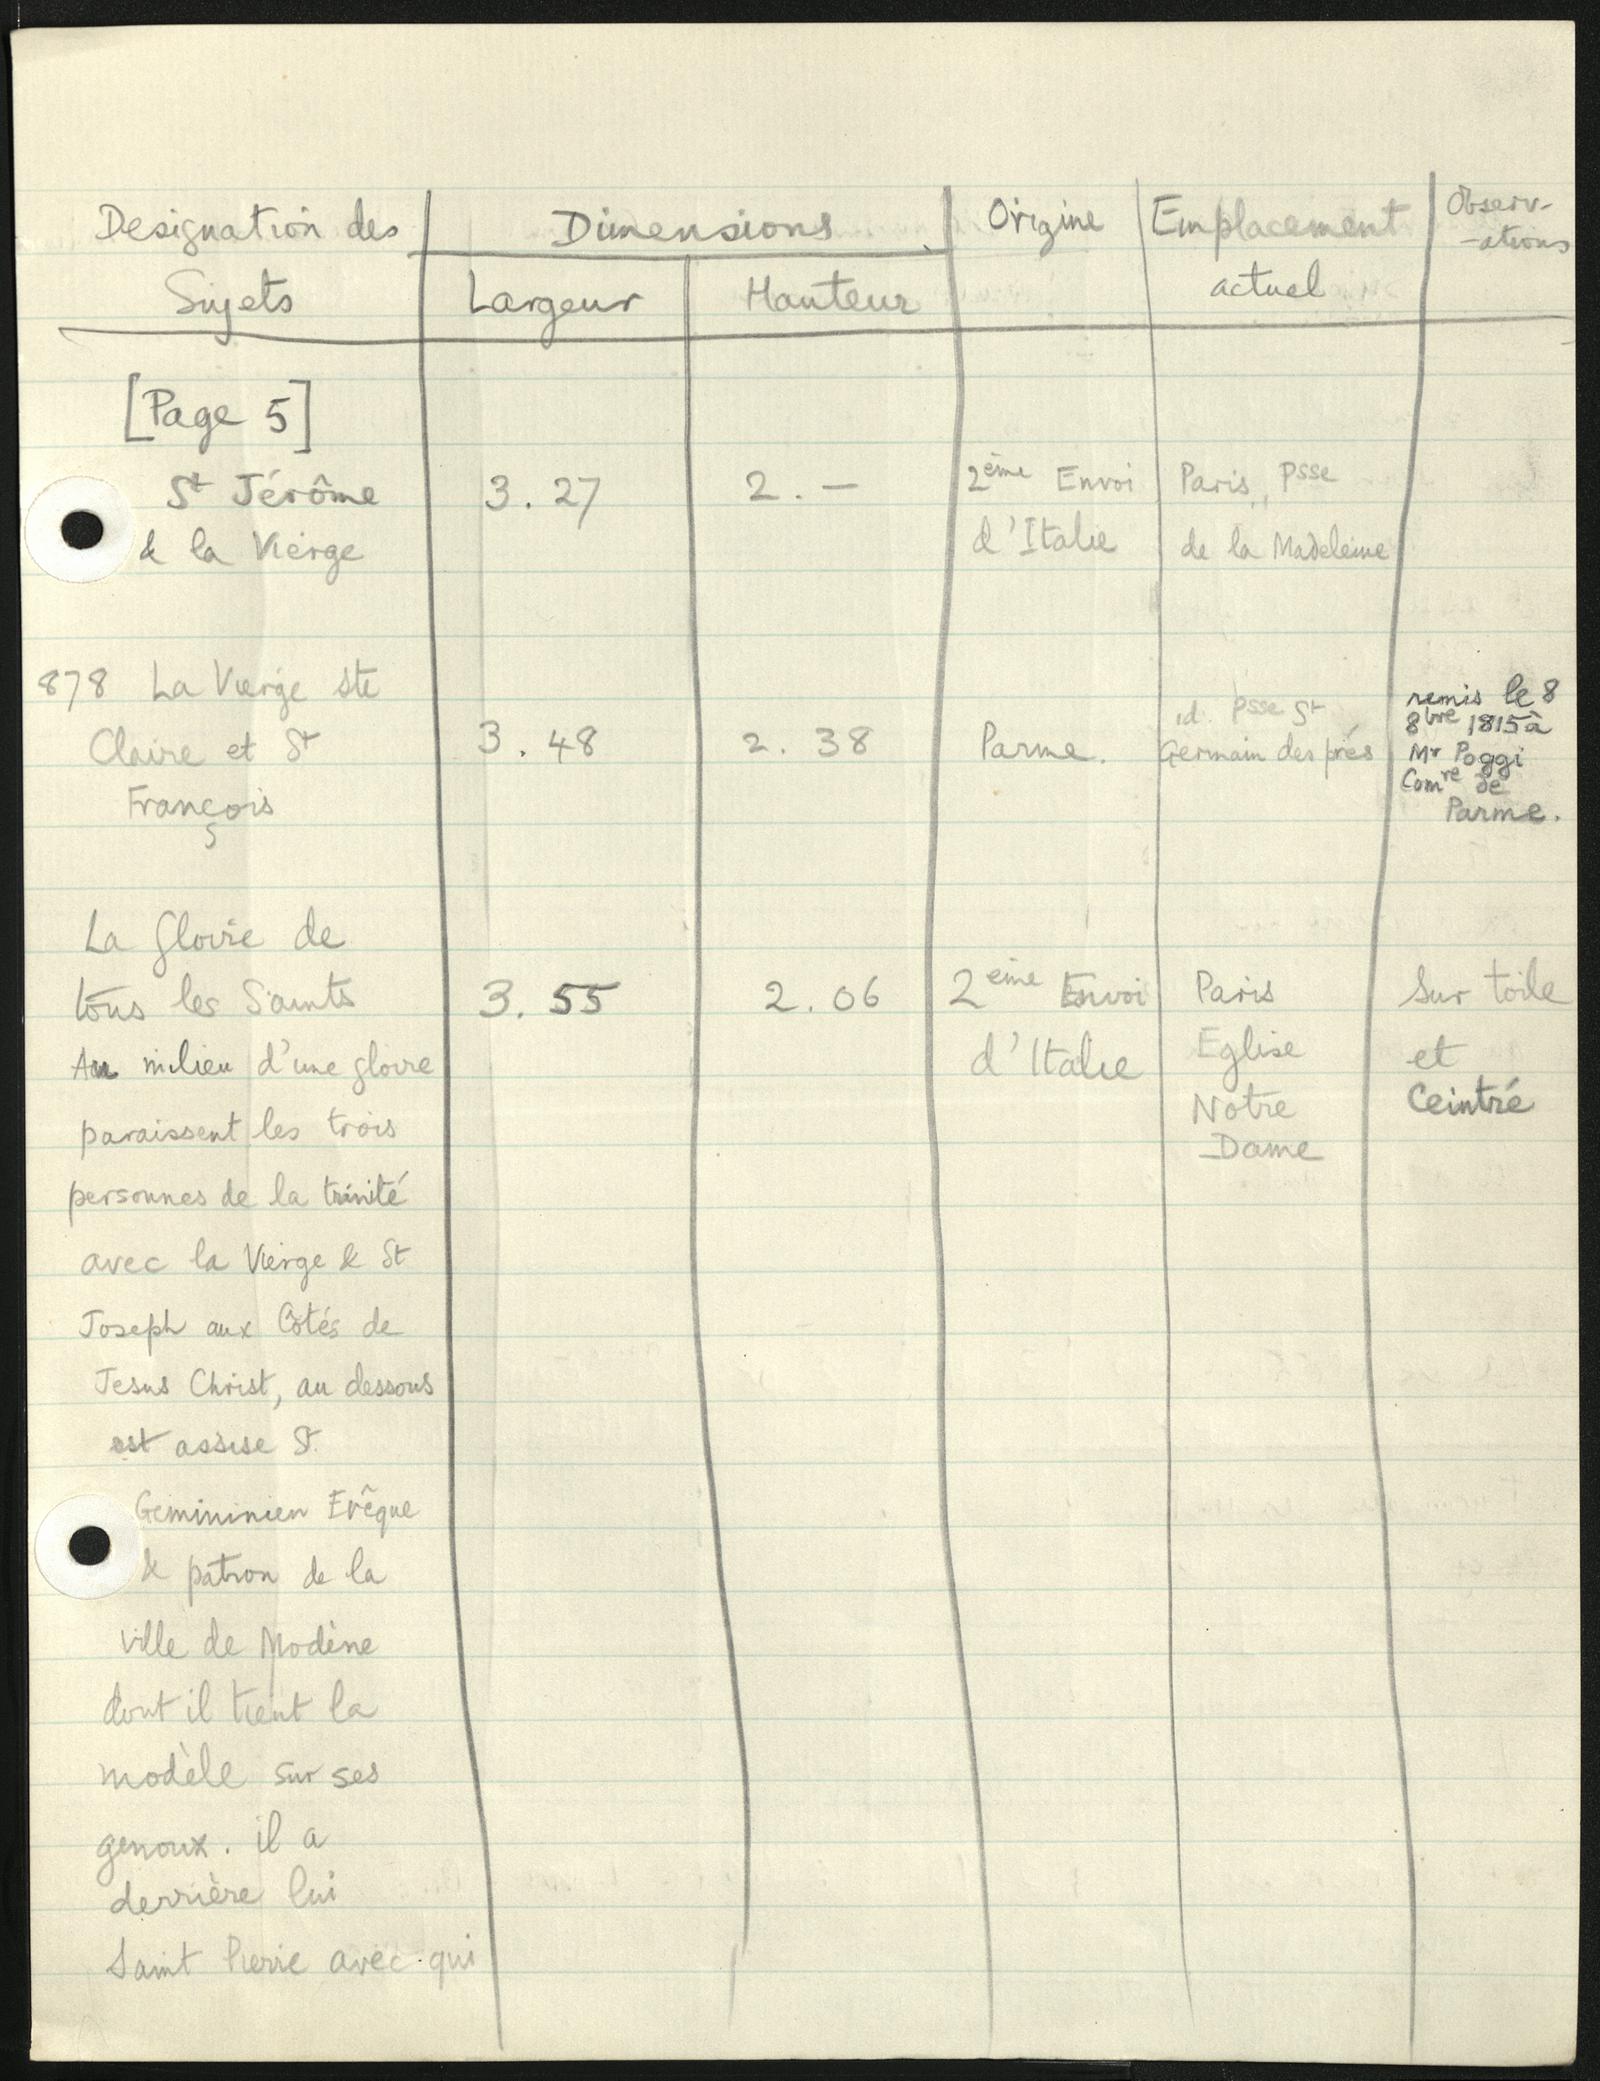 Designation des Dimensions Origine Emplacement Observ-
-ations
Sujets Largeur Hauteur actuel
[Page 5]
St Jérôme 3.27 2.— 2ème Envoi Paris, Psse
& la Vierge d'Italie de la Madeleine
878 La Vierge Ste
Claire et St 3.48 2.38 Parme. id. Psse St
François Germain des prés
remis le 8
8bre 1815 à
Mr Poggi
Comre de
Parme.
La Gloire de
tous les Saints 3.55 2.06 2ème Envoi Paris Sur toile
Au milieu d'une gloire d'Italie Eglise et
paraissent les trois Notre Ceintré
Dame
personnes de la trinité
avec la Vierge & St
Joseph aux Côtés de
Jesus Christ, au dessous
est assise St.
Gemininien Evêque
& patron de la
ville de Modène
dont il tient la
modèle sur ses
genoux. il a
derrière lui
Saint Pierre avec qui